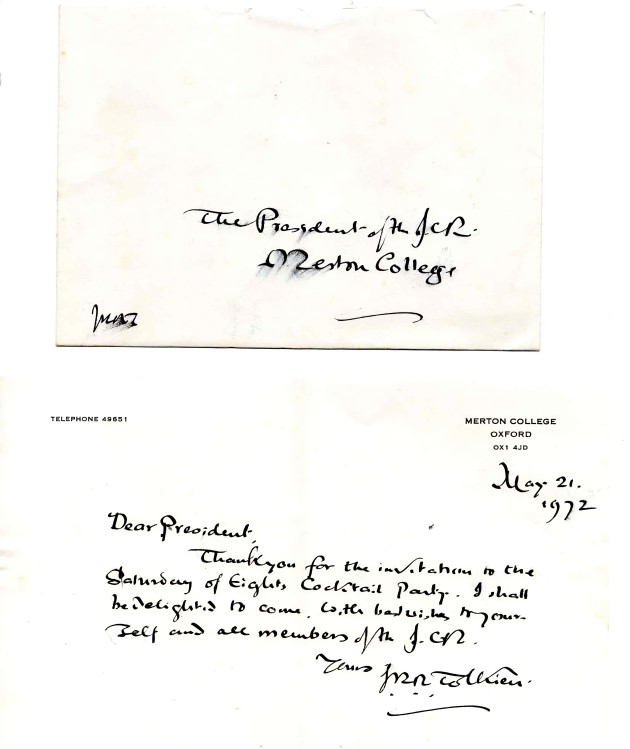 The President of the J.C.R.
Merton College
JRRT
TELEPHONE 49651
MERTON COLLEGE
OXFORD
OX1 4JD
May 21.
1972
Dear President,
Thank you for the invitation to the
Saturday of Eights Cocktail Party. I shall
be delighted to come. With best wishes to your-
self and all members of the J.C.R.
Yours JRR Tolkien.